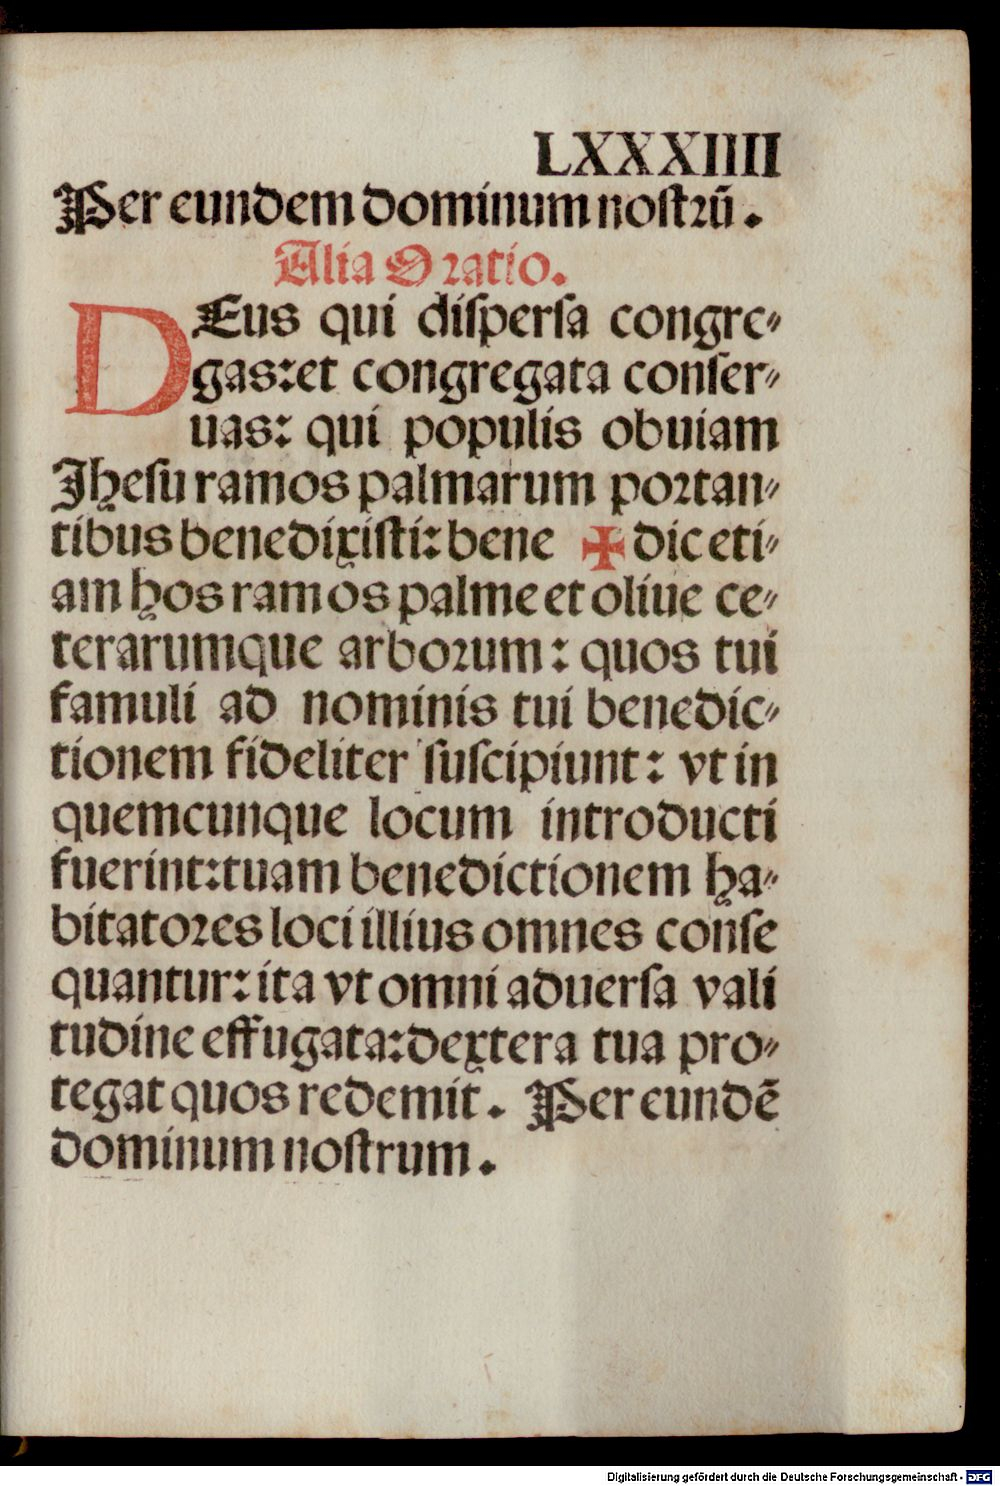 LXXXIIII
Per eundem dominum nostrū.
Alia Oratio.
DEus qui dispersa congre-
gas: et congregata conser-
uas: qui populis obuiam
Jhesu ramos palmarum portan-
tibus benedixisti: bene ✠ dic eti-
am hos ramos palme et oliue ce-
terarumque arborum: quos tui
famuli ad nominis tui benedic-
tionem fideliter suscipiunt: vt in
quemcunque locum introducti
fuerint: tuam benedictionem ha-
bitatores loci illius omnes conse
quantur: ita vt omni aduersa vali
tudine effugata: dextera tua pro-
tegat quos redemit. Per eundē
dominum nostrum.
Digitalisierung gefördert durch die Deutsche Forschungsgemeinschaft - DFG